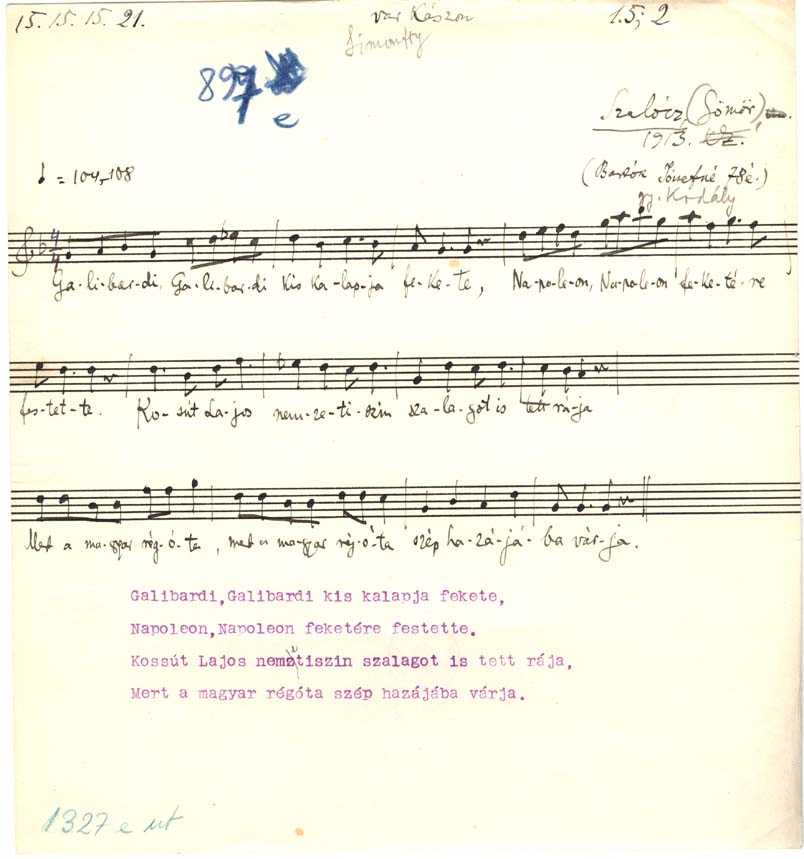 15. 15. 15. 21.
var Kászon
1.5; 2
Simonffy
899
e
Szalócz, (Gömör),
1913.
= 104, 108
(Bartók Józsefné 78é.)
gy. Kodály
4
4
Ga-li-bar-di, Ga-li-bar-di kis ka-lap-ja fe-ke-te, Na-po-le-on, Na-po-le-on fe-ke-té-re
fes-tet-te. Ko-sút La-jos nem-ze-ti-szín sza-la-got is tett rá-ja
Mert a ma-gyar rég-ó-ta, mert a ma-gyar rég-ó-ta szép ha-zá-já-ba vár-ja.
Galibardi,Galibardi kis kalapja fekete,
Napoleon,Napoleon feketére festette.
Kossút Lajos nemzetiszin szalagot is tett rája,
Mert a magyar régóta szép hazájába várja.
1327 e ut